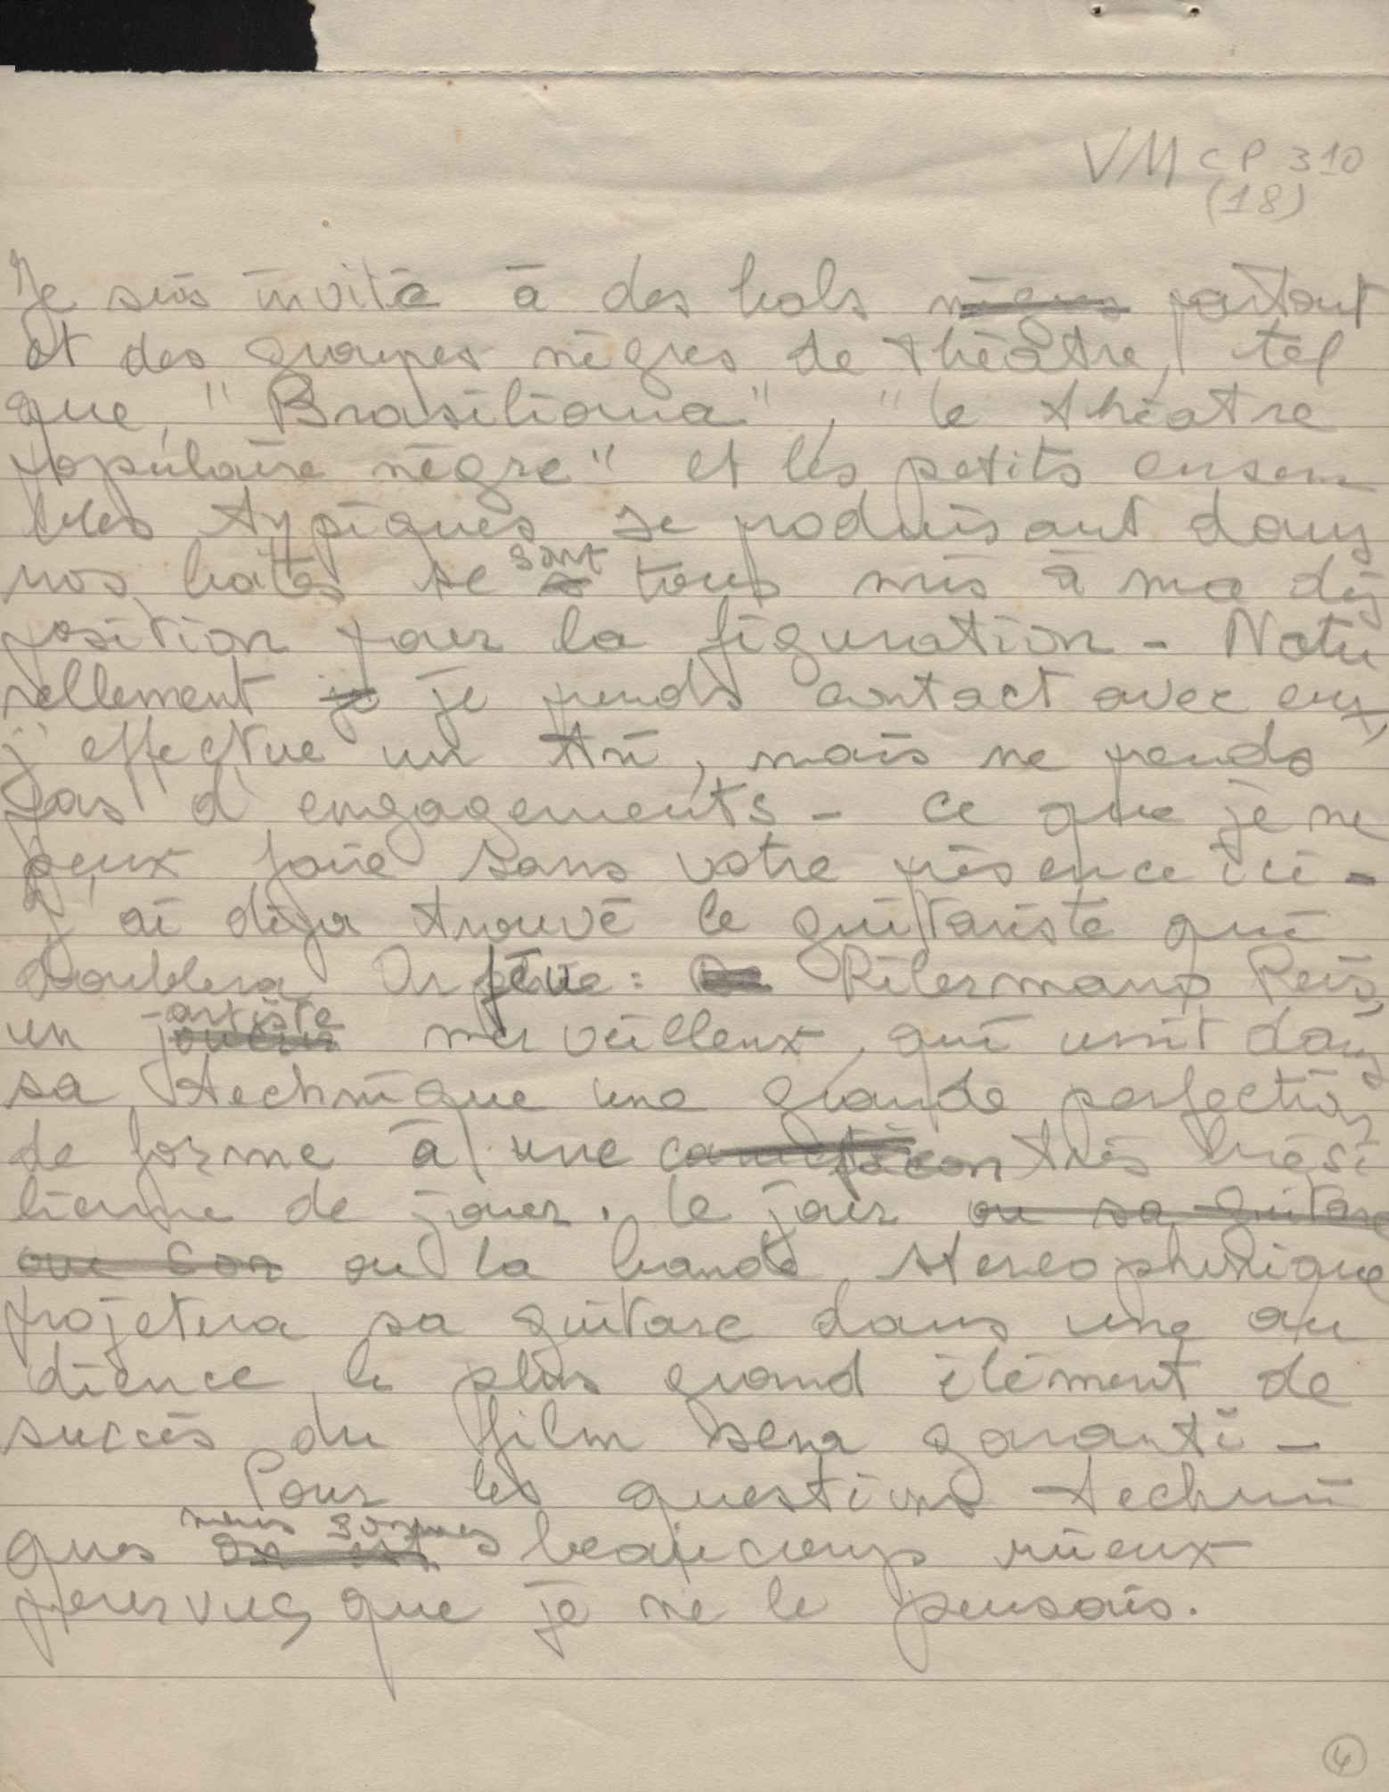 VM CP 310
(18)
Je suis invité à des bals nègres partout
et des groupes nègres de théâtre, tel
que, "Brasiliana", "le théatre
populaire nègre" et les petits ensem
bles typiques se produisant dans
nos boîtes se sont tous mis à ma dis
position pour la figuration - Natu
rellement je je prends contact avec eux,
j'effectue un tri, mais ne prends
pas d'engagements - ce que je ne
peux faire sans votre présence ici -
J'ai déja trouvé le guitariste qui
doublera Orfeue: Dilermano Reis,
un artiste merveilleux, qui unit dans
sa technique une grande perfection
de forme à une façon très brési
lienne de jouer. Le jour ou sa guitare
ou la bande stereophonique
projetera sa guitare dans une au
dience le plus grand élément de
succès du film sera garanti -
Pour les questions techni
ques nous sommes beaucoup mieux
pourvus que je ne le pensais.
4